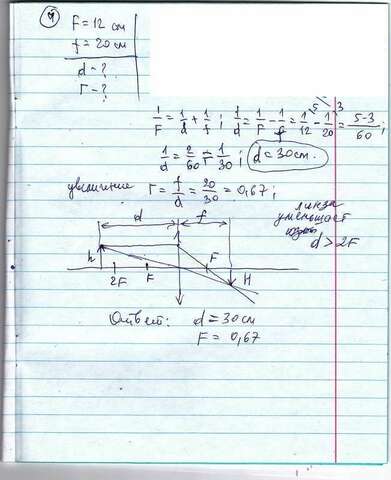 ④
F = 12 см
f = 20 см
d - ?
Г - ?
1/F = 1/d + 1/f ; 1/d = 1/F - 1/f = 1/12 - 1/20 = 5-3/60 ;
1/d = 2/60 = 1/30 ; d = 30 см.
увеличение Г = f/d = 20/30 = 0,67 ;
линза
уменьшает
d > 2F
d f
h 2F F F H
Ответ: d = 30 см
F = 0,67